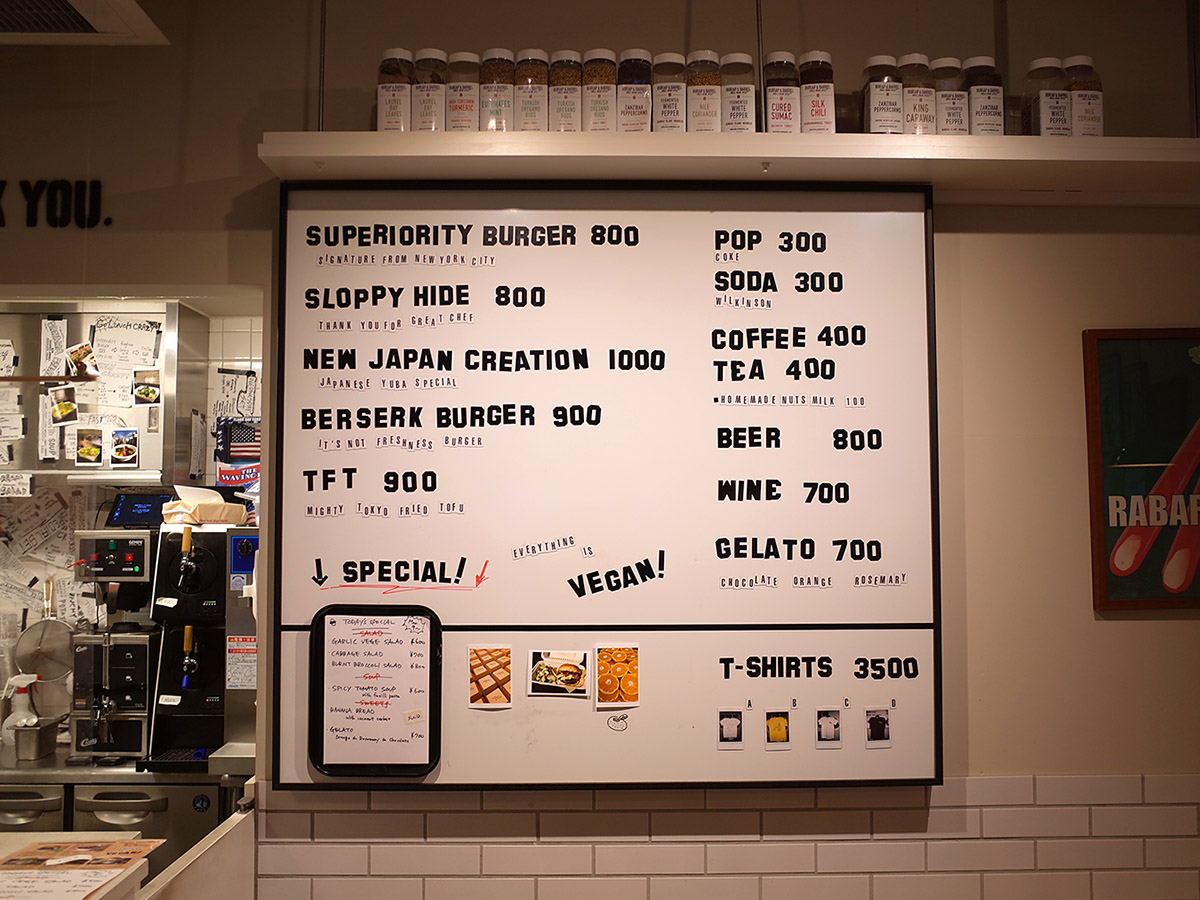 LAUREL BAY LEAVES
LAUREL BAY LEAVES
TURMERIC
MINT
ZANZIBAR PEPPERCORNS
FERMENTED WHITE PEPPER
NILE CORIANDER
FERMENTED WHITE PEPPER
CURED SUMAC
SILK CHILI
ZANZIBAR PEPPERCORNS
KING CARAWAY
WHITE PEPPER
ZANZIBAR PEPPERCORNS
WHITE PEPPER
CORIANDER
YOU.
SUPERIORITY BURGER 800
SIGNATURE FROM NEW YORK CITY
SLOPPY HIDE 800
THANK YOU FOR GREAT CHEF
NEW JAPAN CREATION 1000
JAPANESE YUBA SPECIAL
BERSERK BURGER 900
IT'S NOT FRESHNESS BURGER
TFT 900
MIGHTY TOKYO FRIED TOFU
↓ SPECIAL!
EVERYTHING IS
VEGAN!
POP 300
COKE
SODA 300
WILKINSON
COFFEE 400
TEA 400
▪HOMEMADE NUTS MILK 100
BEER 800
WINE 700
GELATO 700
CHOCOLATE ORANGE ROSEMARY
TODAY'S SPECIAL
SALAD
GARLIC VEGE SALAD ¥600
CABBAGE SALAD ¥700
BURNT BROCCOLI SALAD ¥800
SOUP
SPICY TOMATO SOUP ¥600
SWEETS
BANANA BREAD
GELATO ¥700
T-SHIRTS 3500
A B C D
RABAR